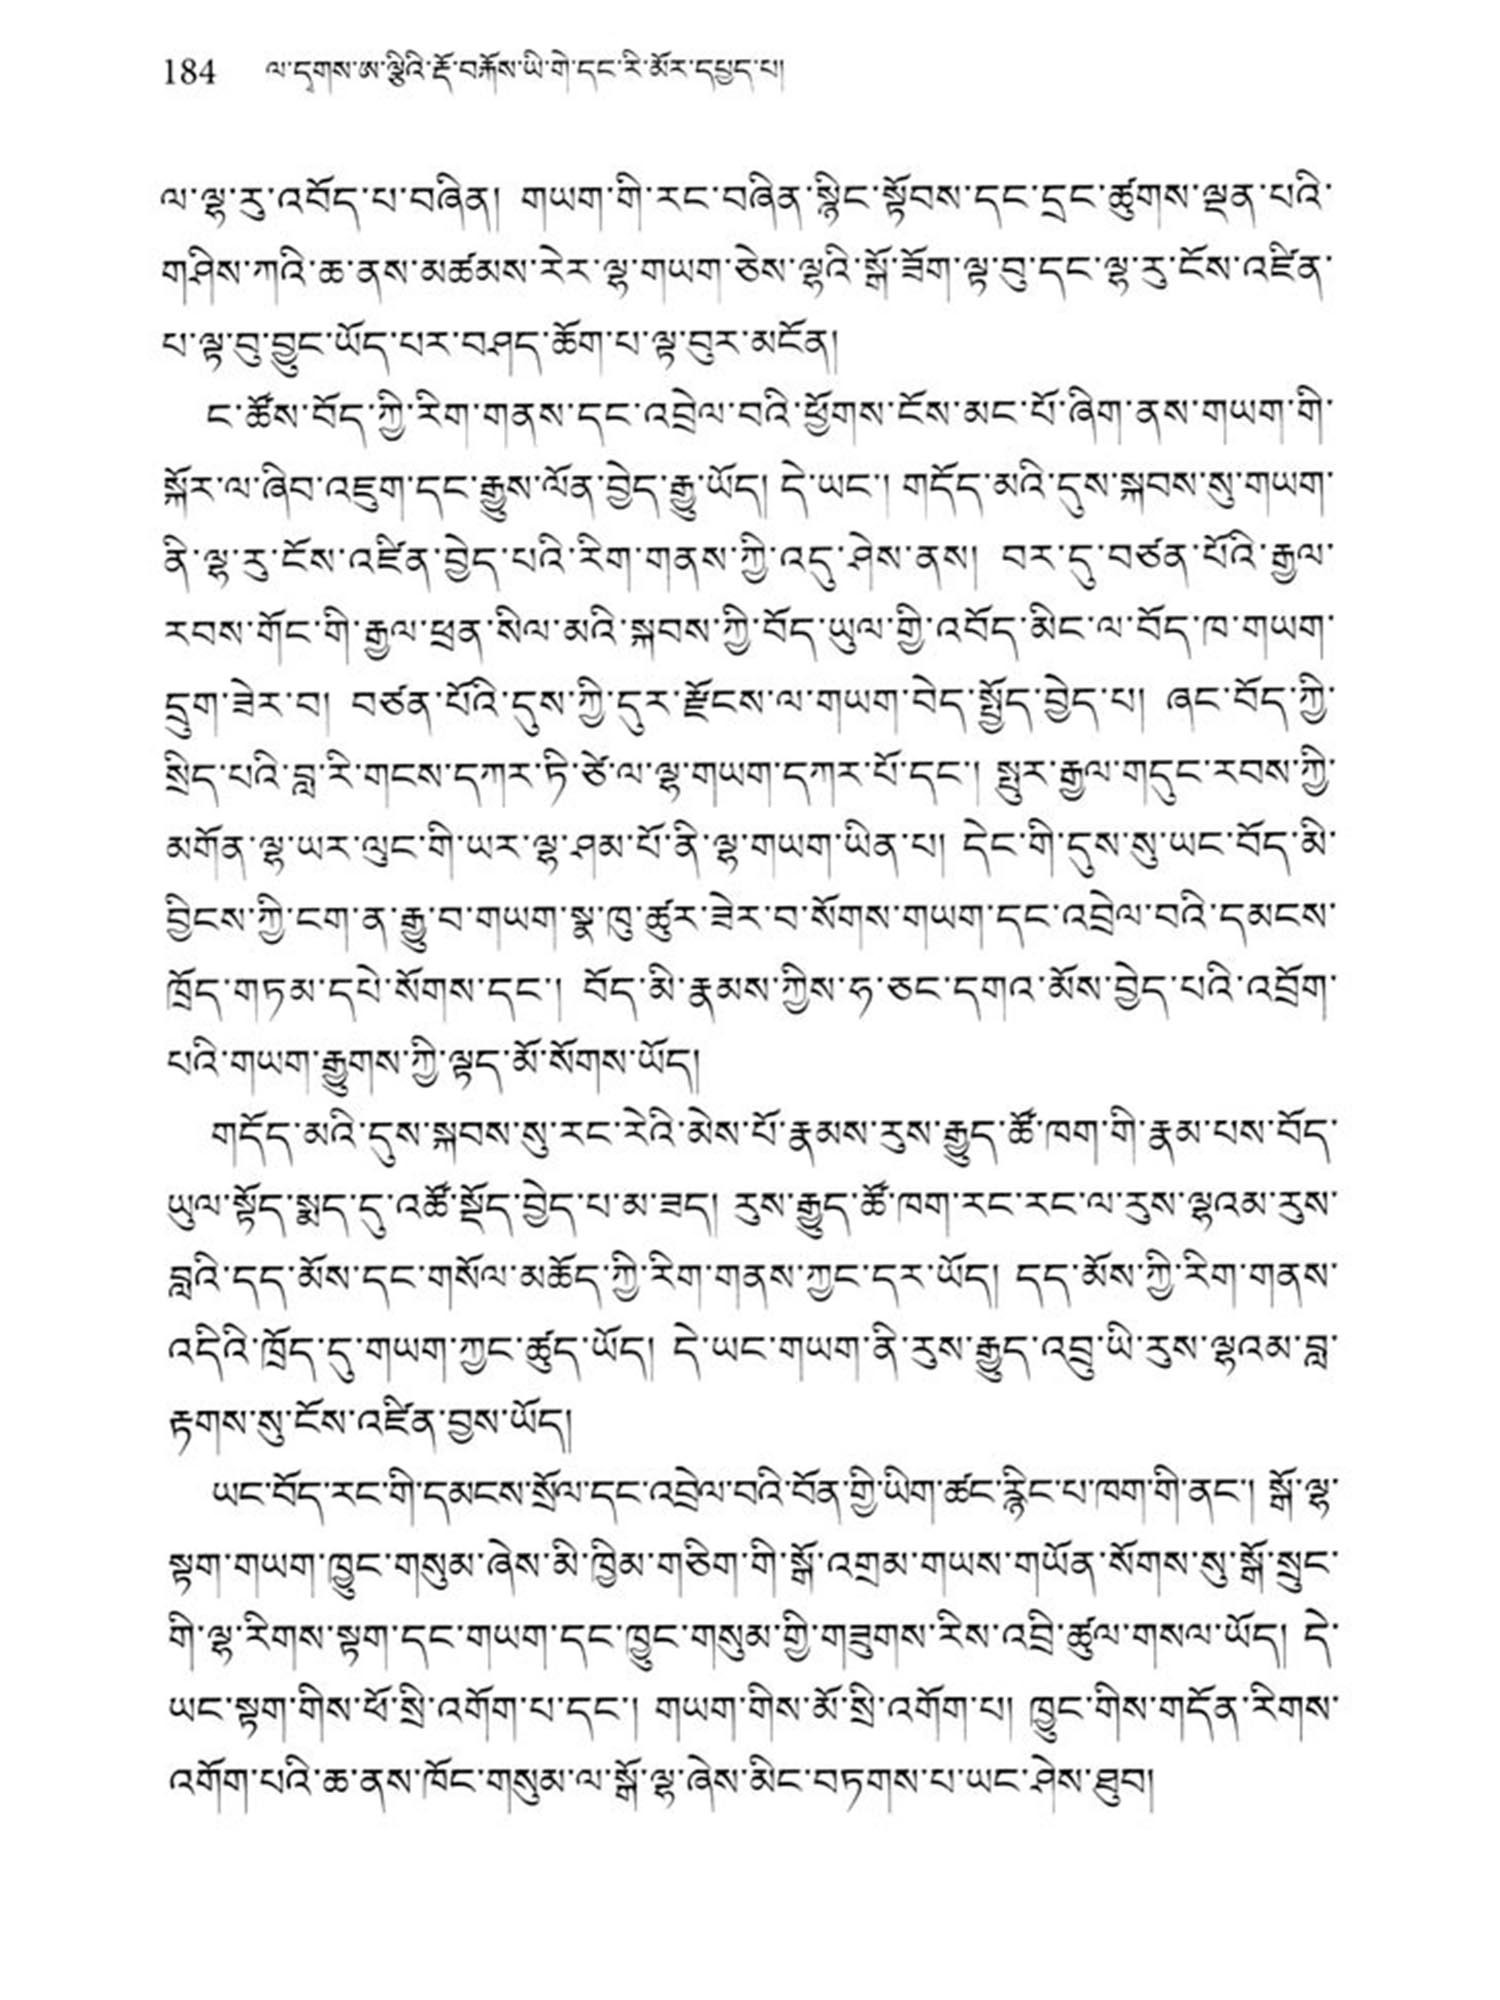 184 ལ་དྭགས་ཨ་ལྕིའི་རྡོ་བརྐོས་ཡི་གེ་དང་རི་མོར་དཔྱད་པ།
ལ་ལྷ་རུ་འབོད་པ་བཞིན། གཡག་གི་རང་བཞིན་སྙིང་སྟོབས་དང་དྲང་ཚུགས་ལྡན་པའི་
གཤིས་ཀའི་ཆ་ནས་མཚམས་རེར་ལྷ་གཡག་ཅེས་ལྷའི་སྒོ་ཟོག་ལྟ་བུ་དང་ལྷ་རུ་ངོས་འཛིན་
པ་ལྟ་བུ་བྱུང་ཡོད་པར་བཤད་ཆོག་པ་ལྟ་བུར་མངོན།
ང་ཚོས་བོད་ཀྱི་རིག་གནས་དང་འབྲེལ་བའི་ཕྱོགས་ངོས་མང་པོ་ཞིག་ནས་གཡག་གི་
སྐོར་ལ་ཞིབ་འཇུག་དང་རྒྱུས་ལོན་བྱེད་རྒྱུ་ཡོད། དེ་ཡང་། གདོད་མའི་དུས་སྐབས་སུ་གཡག་
ནི་ལྷ་རུ་ངོས་འཛིན་བྱེད་པའི་རིག་གནས་ཀྱི་འདུ་ཤེས་ནས། བར་དུ་བཙན་པོའི་རྒྱལ་
རབས་གོང་གི་རྒྱལ་ཕྲན་སིལ་མའི་སྐབས་ཀྱི་བོད་ཡུལ་གྱི་འབོད་མིང་ལ་བོད་ཁ་གཡག་
དྲུག་ཟེར་བ། བཙན་པོའི་དུས་ཀྱི་དུར་རྫོངས་ལ་གཡག་བེད་སྤྱོད་བྱེད་པ། ཞང་བོད་ཀྱི་
སྲིད་པའི་བླ་རི་གངས་དཀར་ཏི་ཙེ་ལ་ལྷ་གཡག་དཀར་པོ་དང་། སྤུར་རྒྱལ་གདུང་རབས་ཀྱི་
མགོན་ལྷ་ཡར་ལུང་གི་ཡར་ལྷ་ཤམ་པོ་ནི་ལྷ་གཡག་ཡིན་པ། དེང་གི་དུས་སུ་ཡང་བོད་མི་
བྱིངས་ཀྱི་ངག་ན་རྒྱུ་བ་གཡག་སྣ་ཁུ་ཚུར་ཟེར་བ་སོགས་གཡག་དང་འབྲེལ་བའི་དམངས་
ཁྲོད་གཏམ་དཔེ་སོགས་དང་། བོད་མི་རྣམས་ཀྱིས་ཧ་ཅང་དགའ་མོས་བྱེད་པའི་འབྲོག་
པའི་གཡག་རྒྱུགས་ཀྱི་ལྟད་མོ་སོགས་ཡོད།
གདོད་མའི་དུས་སྐབས་སུ་རང་རེའི་མེས་པོ་རྣམས་རུས་རྒྱུད་ཚོ་ཁག་གི་རྣམ་པས་བོད་
ཡུལ་སྟོད་སྨད་དུ་འཚོ་སྡོད་བྱེད་པ་མ་ཟད། རུས་རྒྱུད་ཚོ་ཁག་རང་རང་ལ་རུས་ལྷའམ་རུས་
བླའི་དད་མོས་དང་གསོལ་མཆོད་ཀྱི་རིག་གནས་ཀྱང་དར་ཡོད། དད་མོས་ཀྱི་རིག་གནས་
འདིའི་ཁྲོད་དུ་གཡག་ཀྱང་ཚུད་ཡོད། དེ་ཡང་གཡག་ནི་རུས་རྒྱུད་འབྲུ་ཡི་རུས་ལྷའམ་བླ་
རྟགས་སུ་ངོས་འཛིན་བྱས་ཡོད།
ཡང་བོད་རང་གི་དམངས་སྲོལ་དང་འབྲེལ་བའི་བོན་གྱི་ཡིག་ཚང་རྙིང་པ་ཁག་གི་ནང་། སྒོ་ལྷ་
སྟག་གཡག་ཁྱུང་གསུམ་ཞེས་མི་ཁྱིམ་གཅིག་གི་སྒོ་འགྲམ་གཡས་གཡོན་སོགས་སུ་སྒོ་སྲུང་
གི་ལྷ་རིགས་སྟག་དང་གཡག་དང་ཁྱུང་གསུམ་གྱི་གཟུགས་རིས་འབྲི་ཚུལ་གསལ་ཡོད། དེ་
ཡང་སྟག་གིས་ཕོ་སྲི་འགོག་པ་དང་། གཡག་གིས་མོ་སྲི་འགོག་པ། ཁྱུང་གིས་གདོན་རིགས་
འགོག་པའི་ཆ་ནས་ཁོང་གསུམ་ལ་སྒོ་ལྷ་ཞེས་མིང་བཏགས་པ་ཡང་ཤེས་ཐུབ།